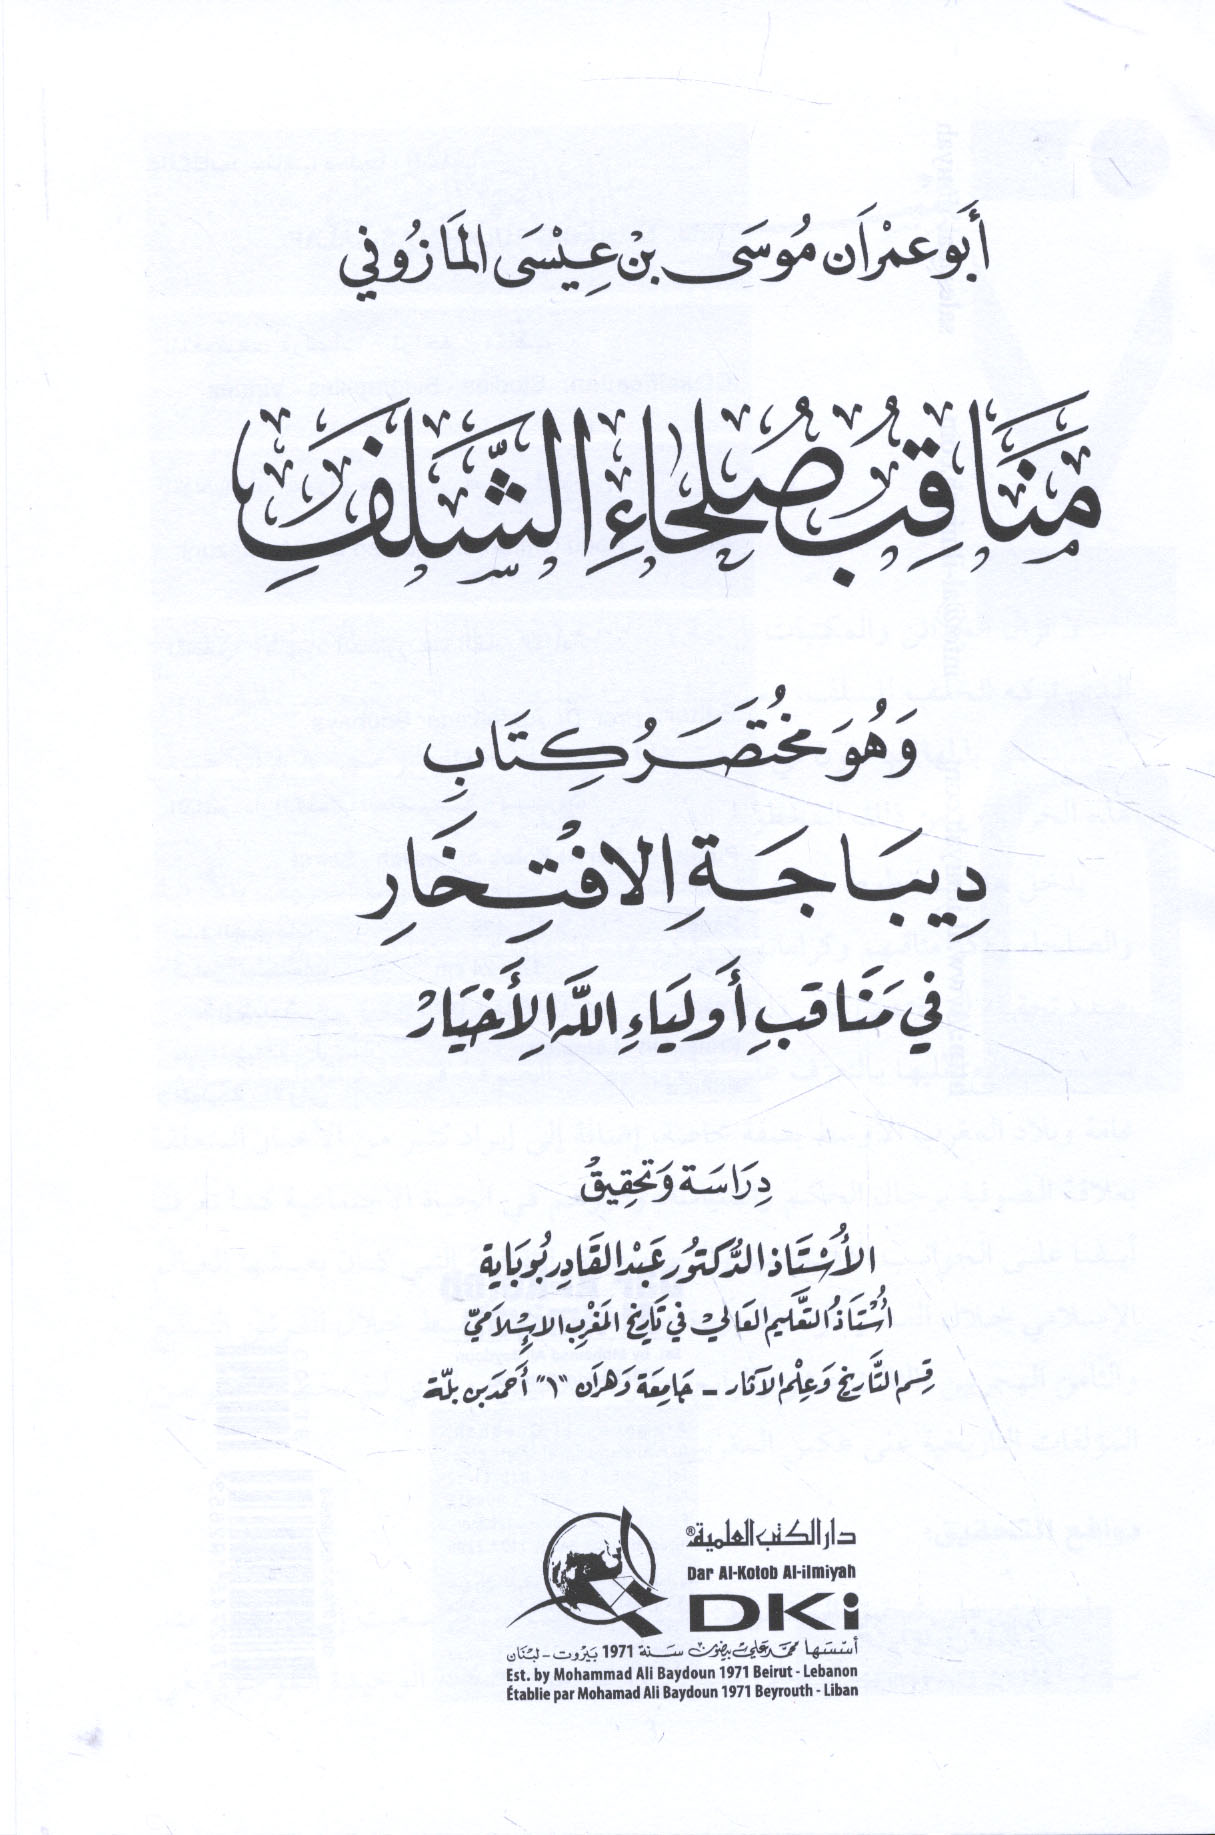 أَبُو عِمْرَان مُوسَى بْن عِيْسَى المَازُوني
مَنَاقِبُ صُلَحَاءِ الشَّلَفِ
وَهُوَ مُخْتَصَرُ كِتَابِ
دِيبَاجَةِ الافْتِخَارِ
في مَنَاقبِ أَوليَاءِ اللَّه الأَخيَارْ
دِرَاسَة وَتحقِيقُ
الأُسْتَاذ الدُّكتُور عَبْد القَادِر بُوبَايَة
أُسْتَاذُ التَّعَلِيم العَالي في تَارِيخ المَغْرِب الإِسْلَاميّ
قِسم التَّارِيخ وَعِلْم الآثَار - جَامِعَة وَهرَان "1" أَحمَد بن بلّة
دار الكتب العلمية®
Dar Al-Kotob Al-ilmiyah
DKi
أسّسَها محمّد علي بيضون سَنة 1971 بَيروت - لبْنان
Est. by Mohammad Ali Baydoun 1971 Beirut - Lebanon
Établie par Mohamad Ali Baydoun 1971 Beyrouth - Liban